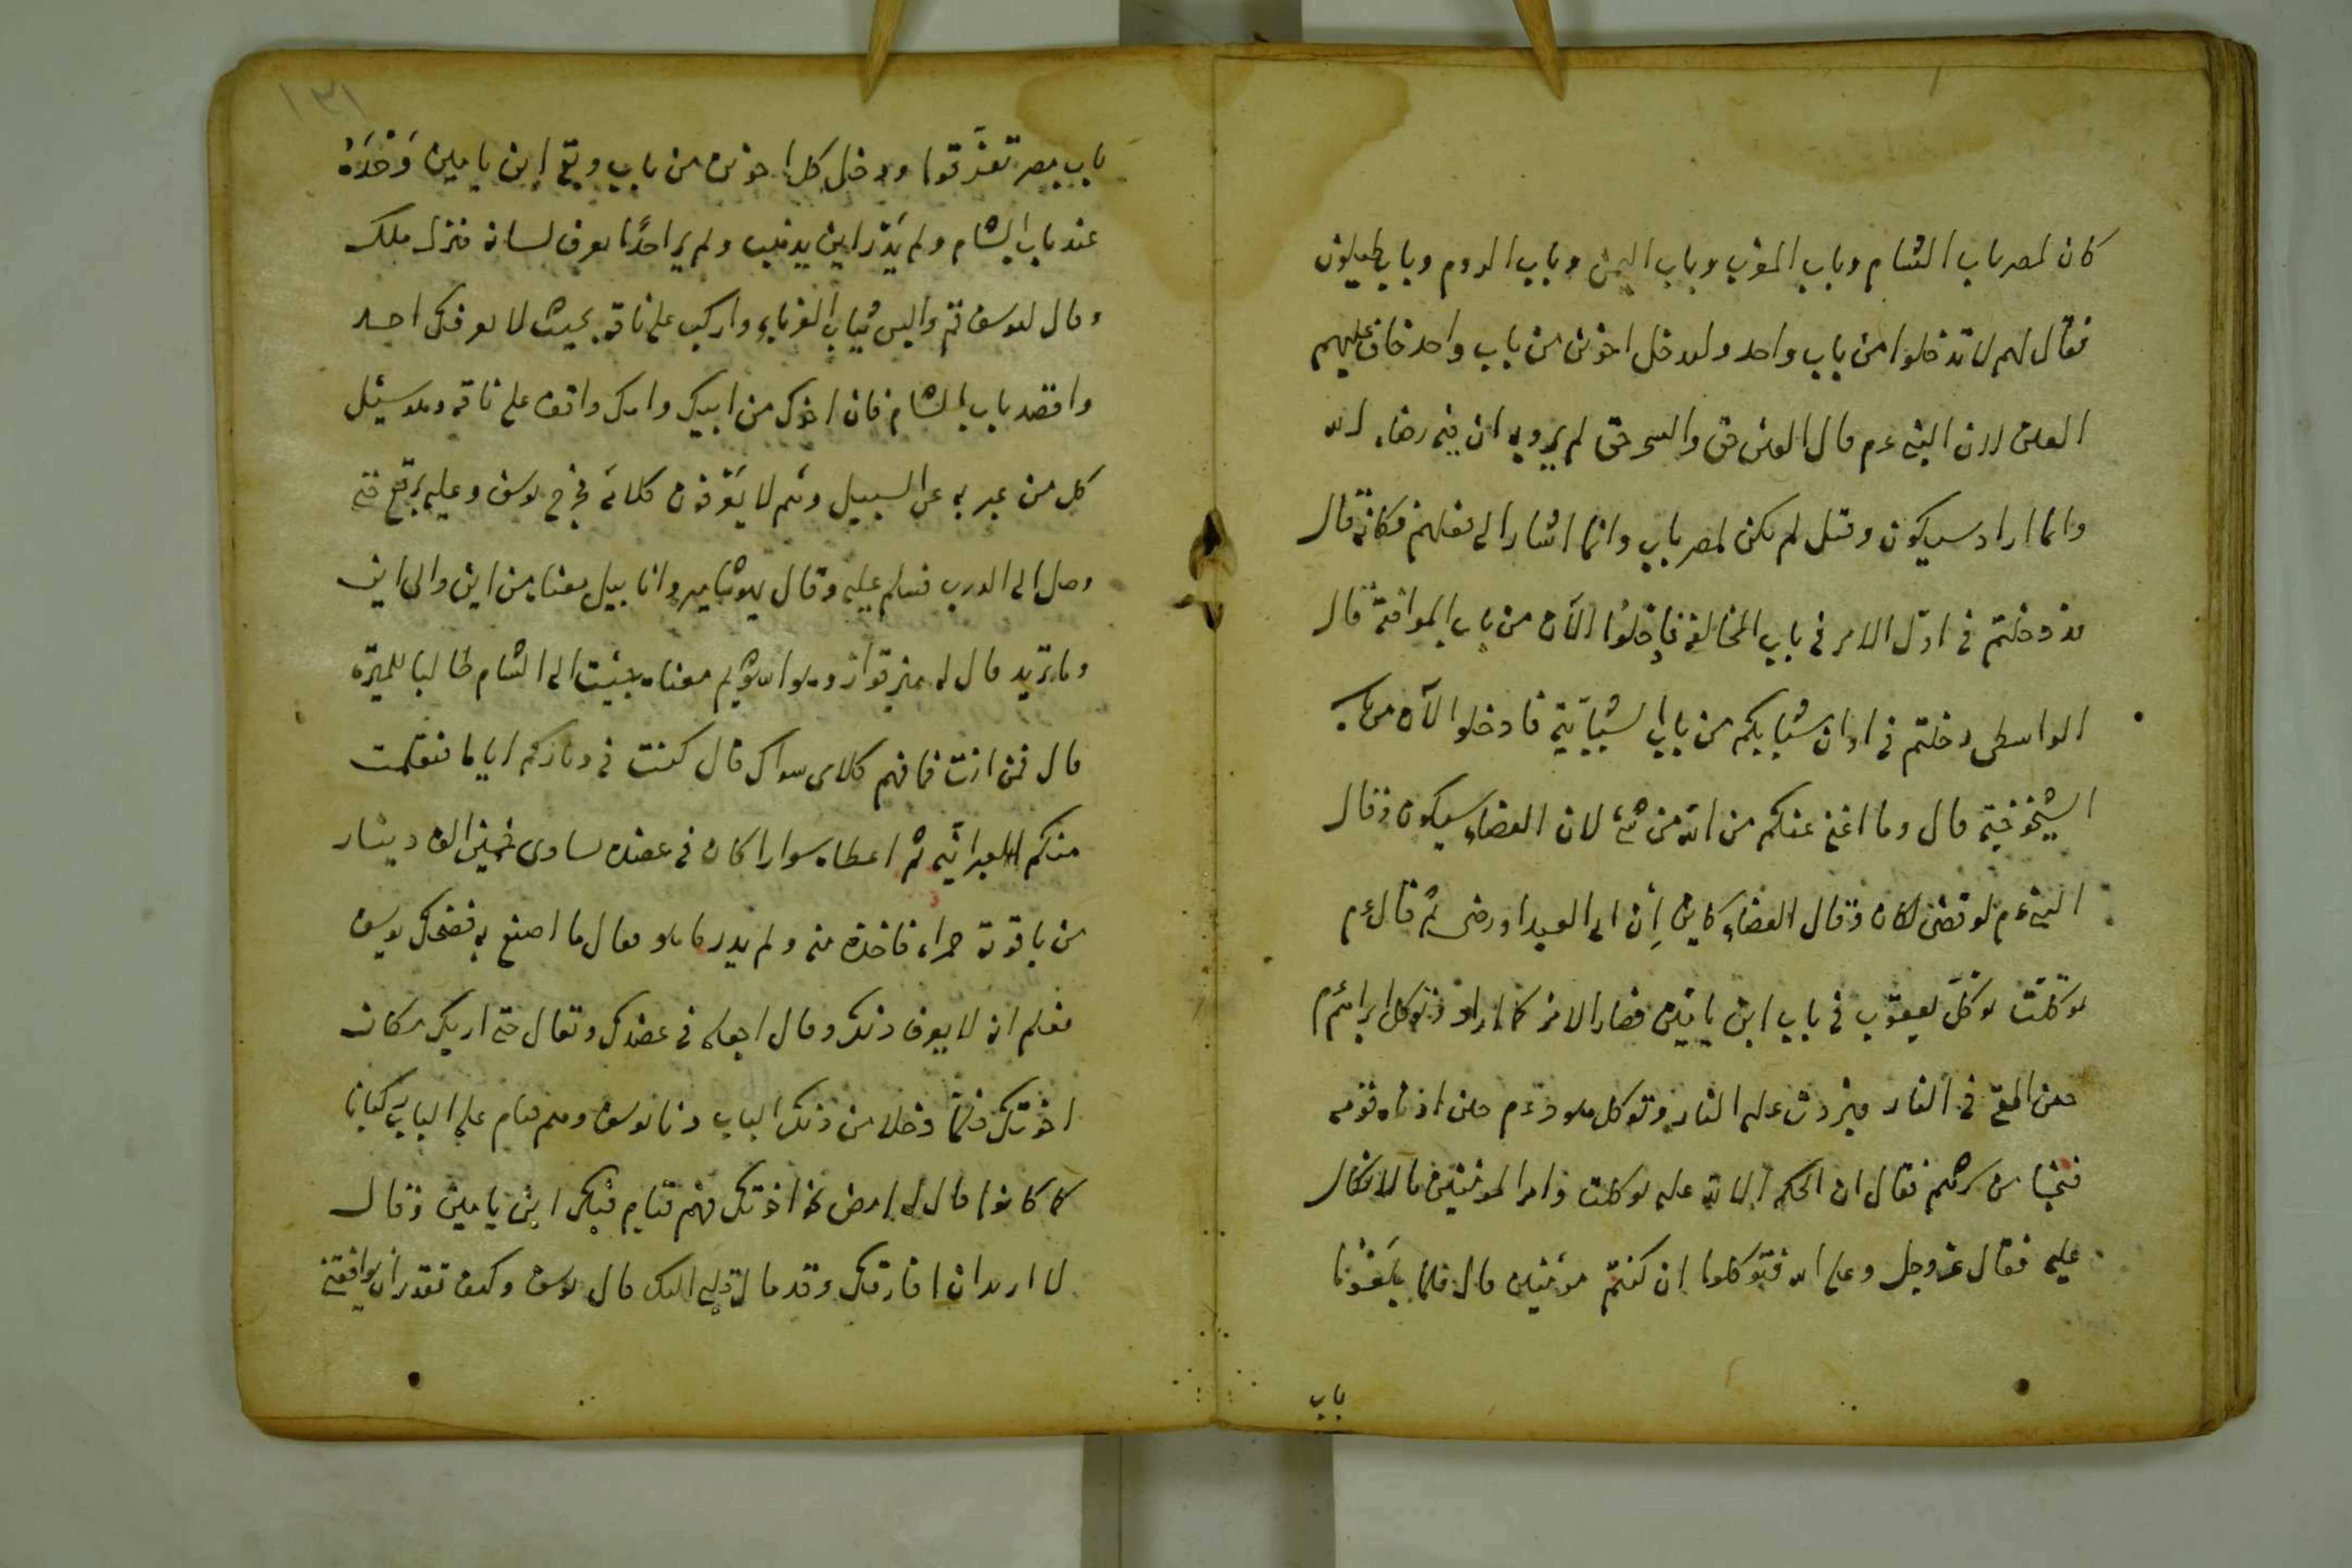 كان لمصر باب الشام وباب المغرب وباب اليمن وباب الروم وباب طيلون
فقال لهم لا تدخلوا من باب واحد وليدخل اخوين من باب واحد خاف عليهم
العين لان النبي ءم قال العين حق والسحر حق لم يرو به ان فيه رضاء الله
وانما اراد سيكون وقيل لم يكن لمصر باب وانما اشار الى فعلهم فكانه قال
قد دخلتم في اول الامر في باب المخالفة فادخلوا الآن من باب الموافقة قال
الواسطى دخلتم في اوان شبابكم من باب الشبابية فادخلوا الآن من باب
الشيخوخية قال وما اغني عنكم من الله من شئ لان القضاء سيكون وقال
النبي ءم لو قضى لكان وقال القضاء كاين إن ابى العبد او رضى ثم قال ءم
توكلت توكل يعقوب في باب ابن يامين فصار الامر كما اراد وتوكل ابراهيم ءم
حين القي في النار فبردت عليه النار وتوكل هود ءم حين اذاه قومه
فنجا من شرهم فقال ان الحكم الا لله عليه توكلت وامر المؤمنين بالاتكال
عليه فقال عز وجل وعلى الله فتوكلوا ان كنتم مؤمنين قال فلما بلغوا
باب
١٣١
باب مصر تفرقوا ودخل كل اخوين من باب وبقي ابن يامين وحده
عند باب الشام ولم يدر اين يذهب ولم ير احدا يعرف لسانه فنزل ملك
وقال ليوسف قم والبس ثياب الغرباء واركب على ناقة بحيث لا يعرفك احد
واقصد باب الشام فان اخوك من ابيك وامك واقف على ناقة وهو يسئل
كل من عبر به عن السبيل وهم لا يعرفون كلامه فخرج يوسف وعليه برقع حتى
وصل الى الدرب فسلم عليه وقال معناه من اين والى اين
وما تريد قال له معناه جئت الى الشام طالبا للميرة
قال فمن انت فما فهم كلامى سواك قال كنت في دياركم اياما فتعلمت
منكم العبرانية ثم اعطاه سوارا كان في عضده يساوى خمسين الف دينار
من ياقوتة حمراء فاخذه منه ولم يدر ما هو فقال ما اصنع به فضحك يوسف
فعلم انه لا يعرف ذلك وقال اجعله في عضدك وتعال حتى اريك مكان
اخوتك فلما دخلا من ذلك الباب دنا يوسف وهم قيام على الباب ركبانا
كما كانوا قال له امض نحو اخوتك فهم قيام فبكى ابن يامين وقال
لا اريد ان افارقك وقد مال قلبى اليك قال يوسف وكيف تقدر ان توافقنى